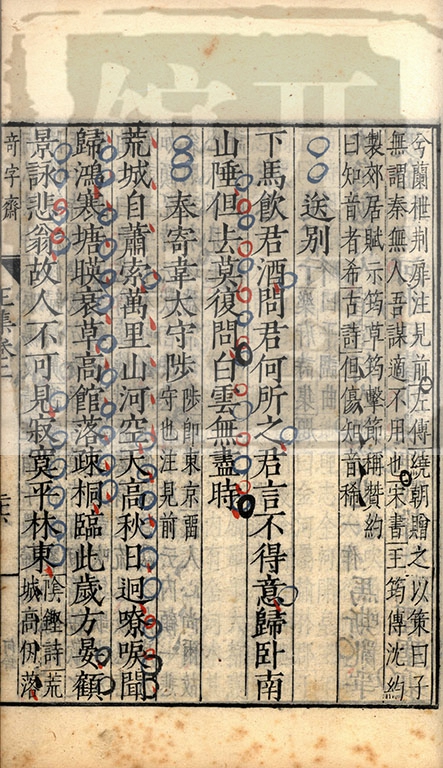 兮蘭枻荆扉注見前左傳繞朝贈之以策曰子
無謂秦無人吾謀適不用也宋書王筠傳沈約
製郊居賦示筠草筠擊節稱贊約
曰知音者希古詩但傷知音稀
送別
下馬飲君酒問君何所之君言不得意歸卧南
山陲但去莫復問白雲無盡時
奉寄韋太守陟
陟即東京留
守也注見前
荒城自蕭索萬里山河空天高秋日迥嘹唳聞
歸鴻寒塘映衰草高館落疎桐臨此歲方晏顧
景詠悲翁故人不可見寂寞平林東
陰鏗詩荒
城高仞落
奇字齋